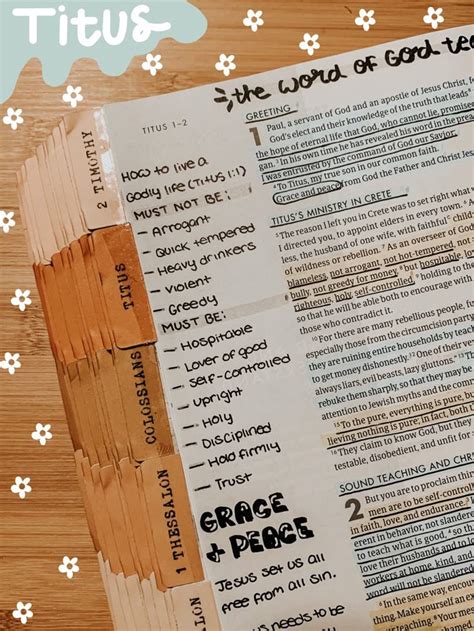 Titus
the word of God te
TITUS 1–2
2 TIMOTHY
TITUS
COLOSSIANS
1 THESSALON
HOW to live a
Godly life (Titus 1:1)
MUST NOT BE:
– Arrogant
– Quick tempered
– Heavy drinkers
– Violent
– Greedy
MUST BE:
– Hospitable
– Lover of good
– self-controlled
– upright
– Holy
– Disciplined
– Hold firmly
– Trust
GRACE
+ PEACE
Jesus set us all
free from all sin.
us needs to be
GREETING
1 Paul, a servant of God and an apostle of Jesus Christ, f
God's elect and their knowledge of the truth that leads
hope of eternal life that God, who cannot lie, promise
gan. ³ In his own time he has revealed his word in the prea
was entrusted by the command of God our Savior.
⁴ To Titus, my true son in our common faith.
Grace and peace from God the Father and Christ Je
TITUS'S MINISTRY IN CRETE
⁵ The reason I left you in Crete was to set right what
done and, as I directed you, to appoint elders in every town.
less, the husband of one wife, with faithful children
of wildness or rebellion. ⁷ As an overseer of God
blameless, not arrogant, not hot-tempered, not
bully, not greedy for money, ⁸ but hospitable, lov
righteous, holy, self-controlled, ⁹ holding
so that he will be able both to encourage with
those who contradict it.
¹⁰ For there are many rebellious people, f
especially those from the circumcision part
they are ruining entire households by teach
to get money dishonestly. ¹² One of their
always liars, evil beasts, lazy gluttons.
rebuke them sharply, so that they may be
attention to Jewish myths and the comm
¹⁵ To the pure, everything is pure, but
lieving nothing is pure; in fact, both
¹⁶ They claim to know God, but they
testable, disobedient, and unfit for
SOUND TEACHING AND CHRI
2 But you are to proclaim
men are to be self-controlled
in faith, love, and endurance.
erent in behavior, not slander
to teach what is good, ⁴ so th
love their husbands and to lo
kind, and in
word will not be slandered
thing. Make yourself an ex